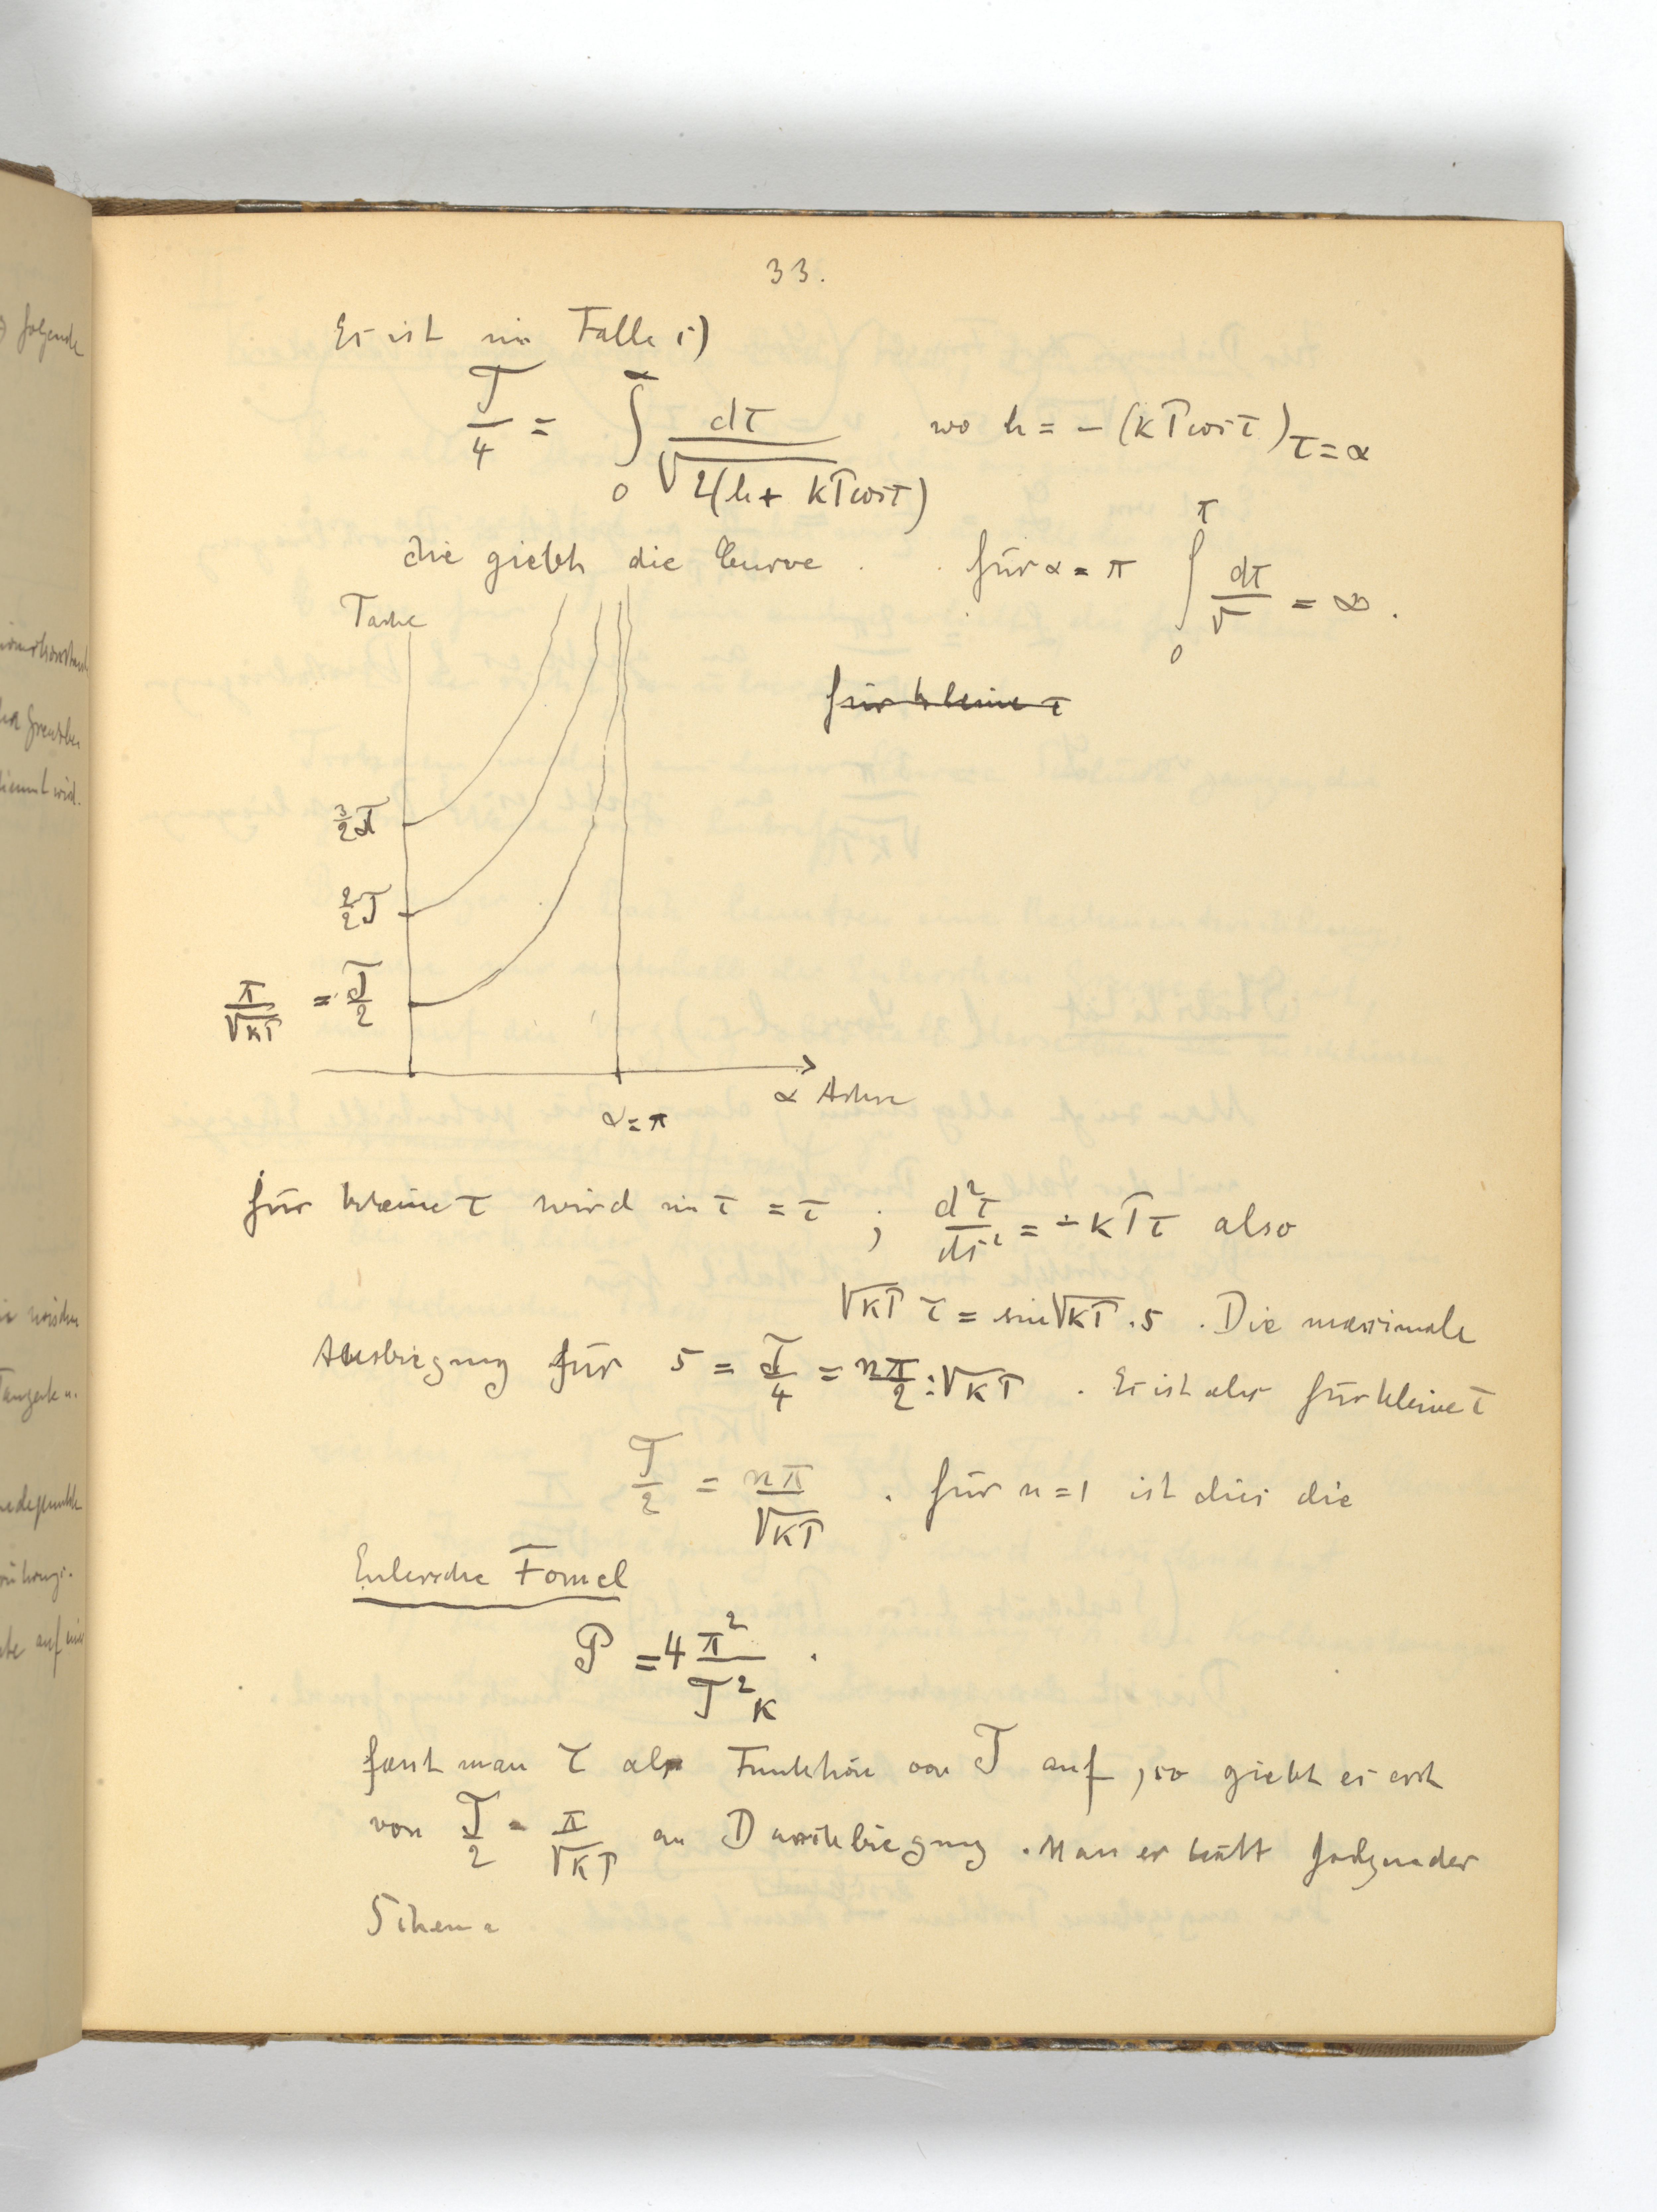 33.
Es ist im Falle 1)
T/4 = ∫₀^α dτ / √2(h + kP cos τ) wo h = -(kP cos τ)τ=α
die giebt die Curve . für α = π ∫₀^π dτ/√ = ∞ .
für kleine τ
3/2 T
2/2 T
π/√kP = T/2
α Achse
α = π
für kleine τ wird sin τ = τ ; d²τ/ds² = -kPτ also
√kP τ = sin √kP . s . Die maximale
Ausbiegung für s = T/4 = nπ/2 : √kP . Es ist aber für kleine τ
T/2 = nπ/√kP . für n = 1 ist dies die
Eulersche Formel
P = 4 π²/T²k .
fasst man τ als Funktion von T auf, so giebt es erst
von T/2 = π/√kP an Durchbiegung . Man erhält folgender
Schema